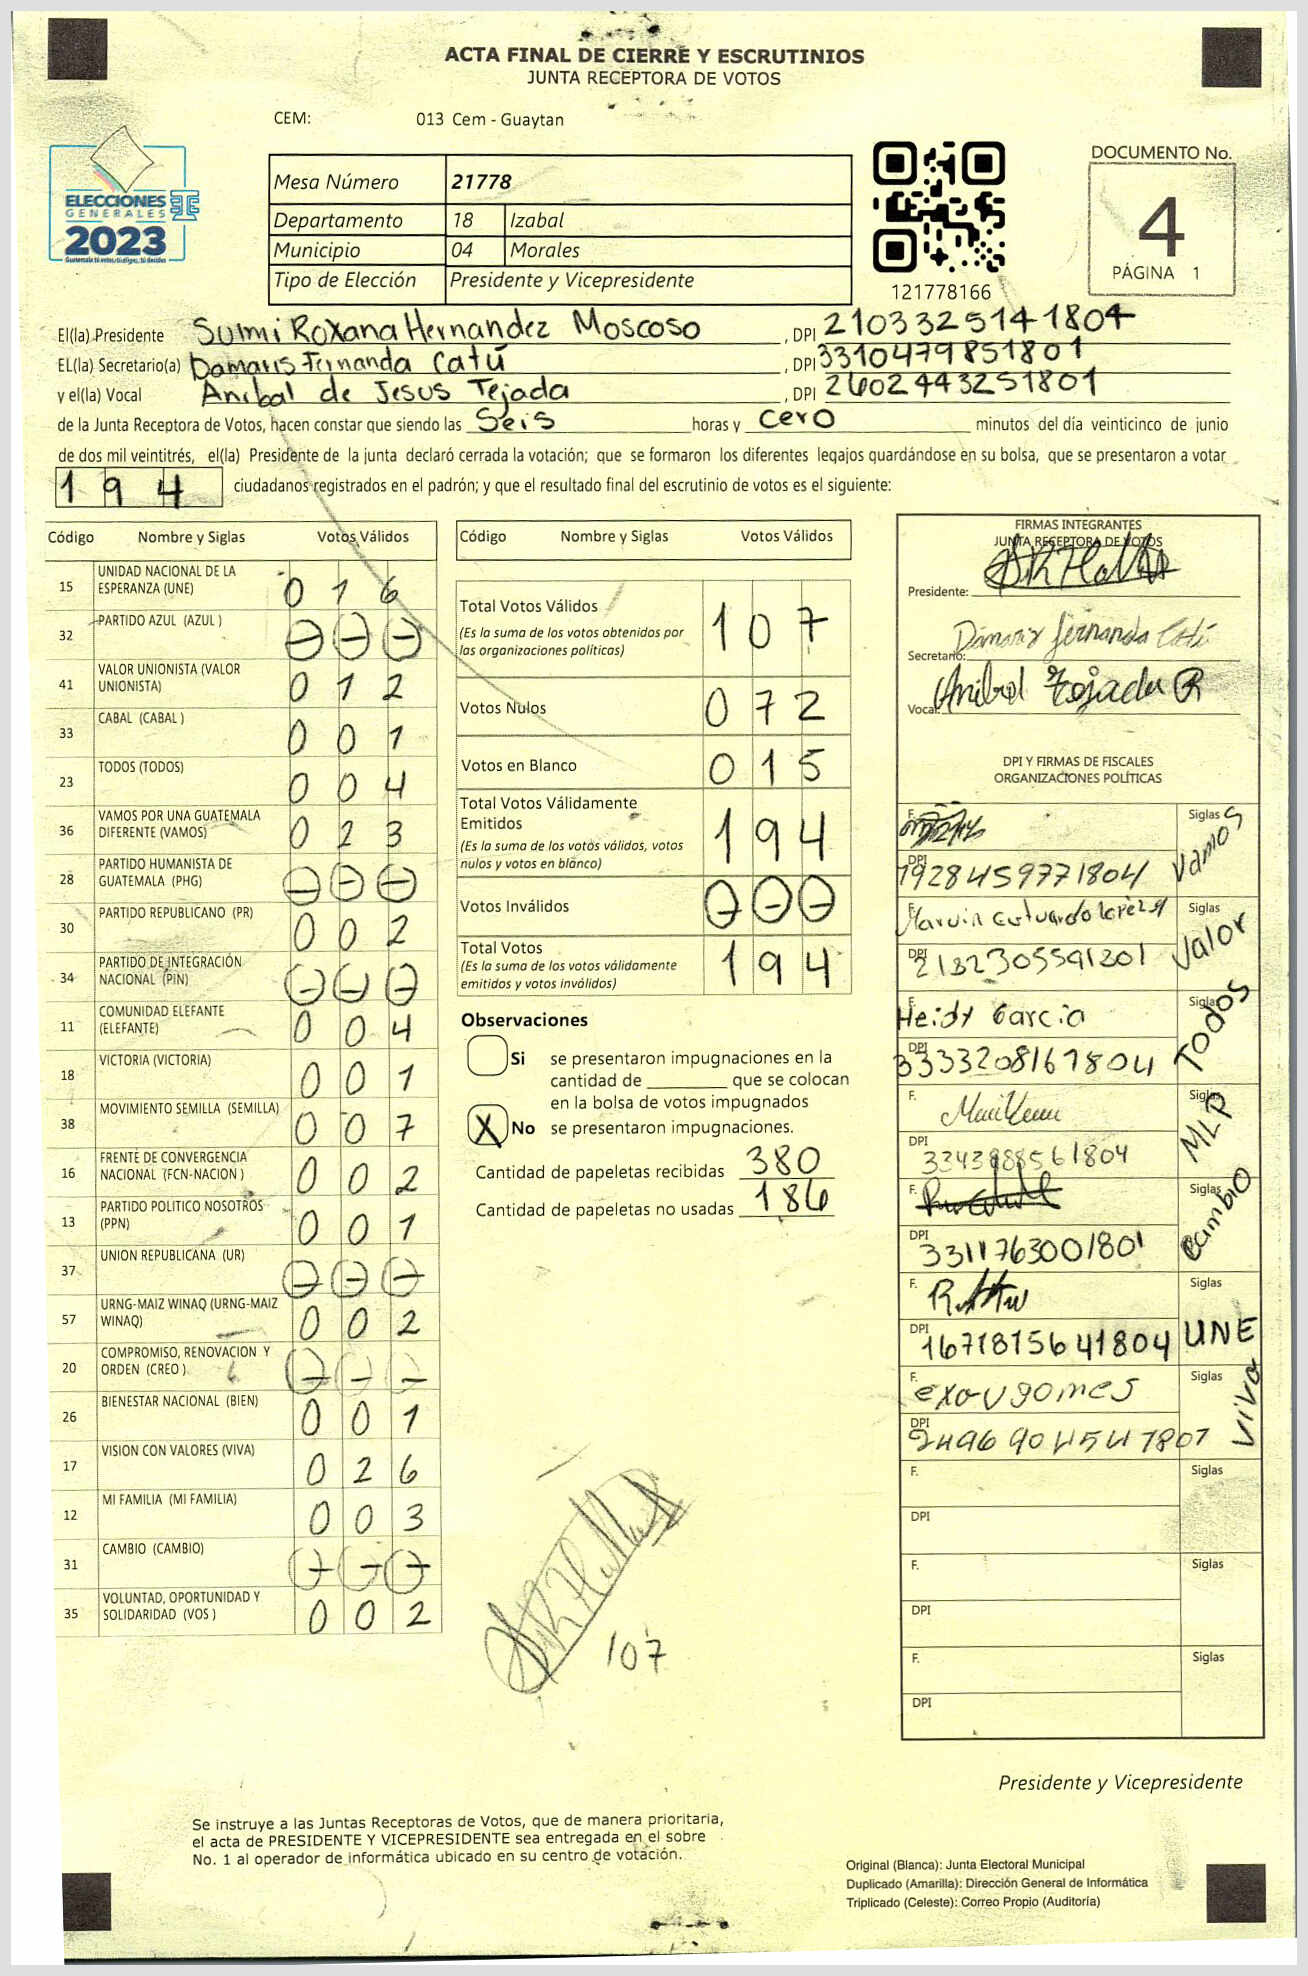 ACTA FINAL DE CIERRE Y ESCRUTINIOS
JUNTA RECEPTORA DE VOTOS
CEM: 013 Cem - Guaytan
ELECCIONES
GENERALES
2023
Mesa Número 21778
Departamento 18 Izabal
Municipio 04 Morales
Tipo de Elección Presidente y Vicepresidente
121778166
DOCUMENTO No.
4
PÁGINA 1
El(la) Presidente Sulmi Roxana Hernandez Moscoso , DPI 2103325141804
EL(la) Secretario(a) Damaris Fernanda Catú , DPI 3310479851801
y el(la) Vocal Anibal de Jesus Tejada , DPI 2602443251801
de la Junta Receptora de Votos, hacen constar que siendo las Seis horas y cero minutos del día veinticinco de junio
de dos mil veintitrés, el(la) Presidente de la junta declaró cerrada la votación; que se formaron los diferentes legajos guardándose en su bolsa, que se presentaron a votar
194 ciudadanos registrados en el padrón; y que el resultado final del escrutinio de votos es el siguiente:
Código Nombre y Siglas Votos Válidos
15 UNIDAD NACIONAL DE LA ESPERANZA (UNE) 0 1 6
32 PARTIDO AZUL (AZUL )
41 VALOR UNIONISTA (VALOR UNIONISTA) 0 1 2
33 CABAL (CABAL ) 0 0 1
23 TODOS (TODOS) 0 0 4
36 VAMOS POR UNA GUATEMALA DIFERENTE (VAMOS) 0 2 3
28 PARTIDO HUMANISTA DE GUATEMALA (PHG)
30 PARTIDO REPUBLICANO (PR) 0 0 2
34 PARTIDO DE INTEGRACIÓN NACIONAL (PIN)
11 COMUNIDAD ELEFANTE (ELEFANTE) 0 0 4
18 VICTORIA (VICTORIA) 0 0 1
38 MOVIMIENTO SEMILLA (SEMILLA) 0 0 7
16 FRENTE DE CONVERGENCIA NACIONAL (FCN-NACION ) 0 0 2
13 PARTIDO POLITICO NOSOTROS (PPN) 0 0 1
37 UNION REPUBLICANA (UR)
57 URNG-MAIZ WINAQ (URNG-MAIZ WINAQ) 0 0 2
20 COMPROMISO, RENOVACION Y ORDEN (CREO )
26 BIENESTAR NACIONAL (BIEN) 0 0 1
17 VISION CON VALORES (VIVA) 0 2 6
12 MI FAMILIA (MI FAMILIA) 0 0 3
31 CAMBIO (CAMBIO)
35 VOLUNTAD, OPORTUNIDAD Y SOLIDARIDAD (VOS ) 0 0 2
Código Nombre y Siglas Votos Válidos
Total Votos Válidos 1 0 7
(Es la suma de los votos obtenidos por
las organizaciones políticas)
Votos Nulos 0 7 2
Votos en Blanco 0 1 5
Total Votos Válidamente
Emitidos 1 9 4
(Es la suma de los votos válidos, votos
nulos y votos en blanco)
Votos Inválidos
Total Votos 1 9 4
(Es la suma de los votos válidamente
emitidos y votos inválidos)
Observaciones
Si se presentaron impugnaciones en la
cantidad de ________ que se colocan
en la bolsa de votos impugnados
X No se presentaron impugnaciones.
Cantidad de papeletas recibidas 380
Cantidad de papeletas no usadas 186
107
FIRMAS INTEGRANTES
JUNTA RECEPTORA DE VOTOS
Presidente:
Secretario: Damaris Fernanda Catú
Vocal: Anibal Tejada R
DPI Y FIRMAS DE FISCALES
ORGANIZACIONES POLÍTICAS
F. Siglas Vamos
DPI 1928459771804
F. Siglas Valor
DPI 2132305591801
F. Heidy Garcia Siglas Todos
DPI 3333208161804
F. Siglas MLP
DPI 3343888561804
F. Siglas Cambio
DPI 3311763001801
F. Siglas UNE
DPI 1671815641804
F. exau gomes Siglas Viva
DPI 2496904541807
F. Siglas
DPI
F. Siglas
DPI
F. Siglas
DPI
Presidente y Vicepresidente
Se instruye a las Juntas Receptoras de Votos, que de manera prioritaria,
el acta de PRESIDENTE Y VICEPRESIDENTE sea entregada en el sobre
No. 1 al operador de informática ubicado en su centro de votación.
Original (Blanca): Junta Electoral Municipal
Duplicado (Amarilla): Dirección General de Informática
Triplicado (Celeste): Correo Propio (Auditoría)